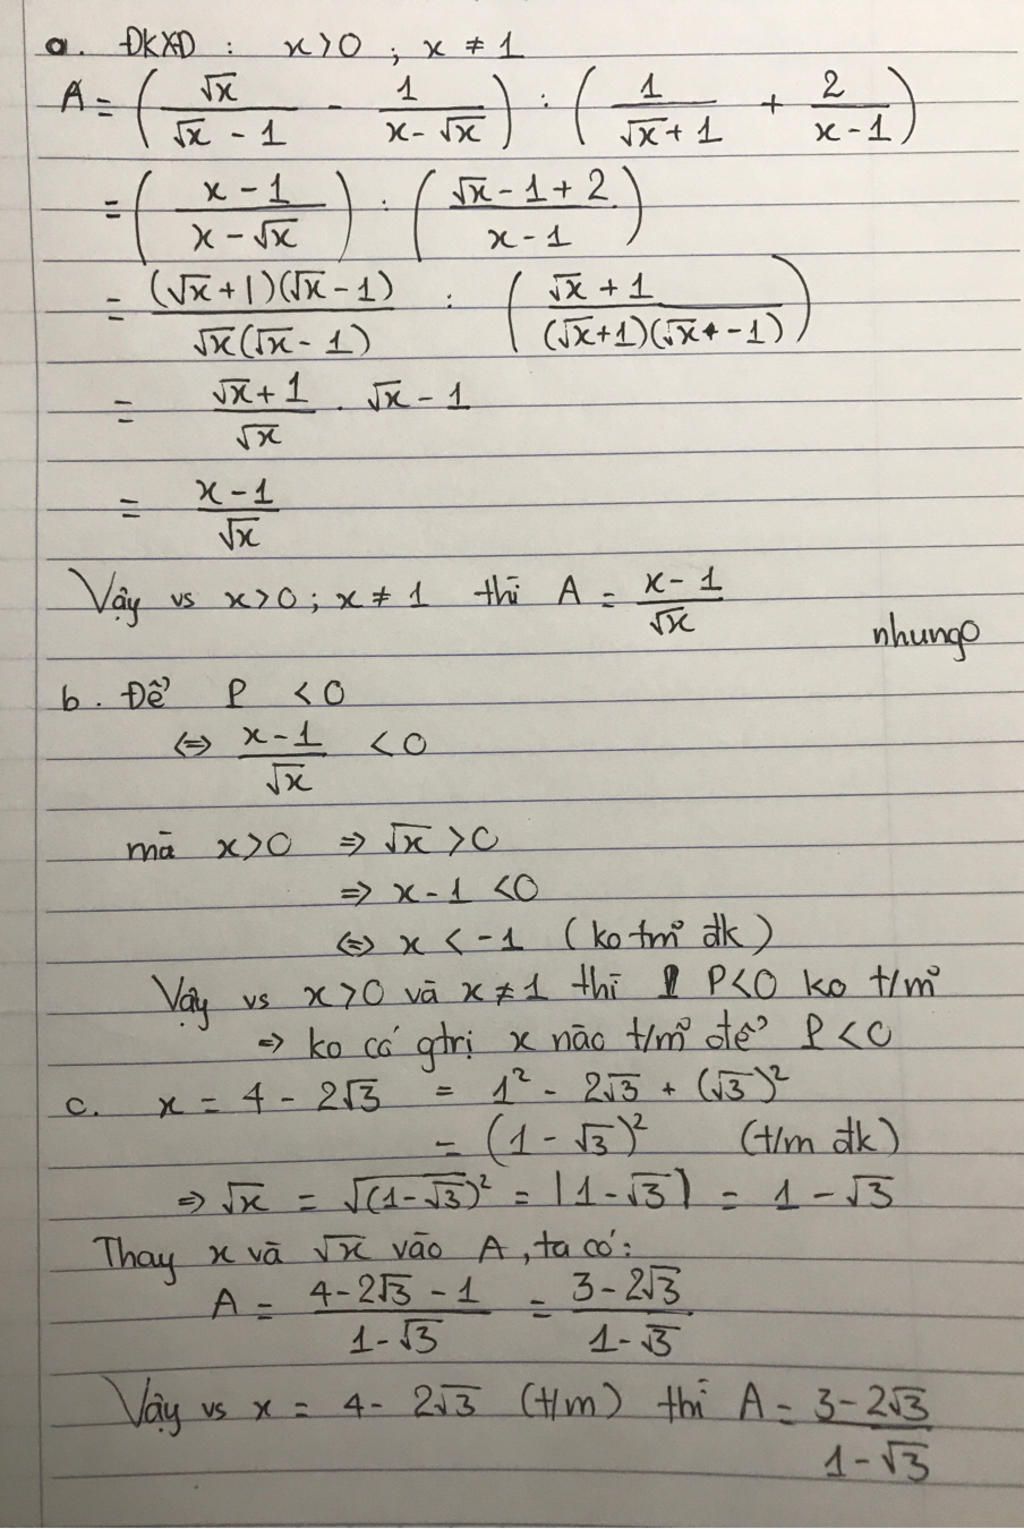 a. ĐKXĐ : x>0 ; x ≠ 1
A = ( √x / (√x - 1) - 1 / (x - √x) ) : ( 1 / (√x + 1) + 2 / (x - 1) )
= ( (x - 1) / (x - √x) ) : ( (√x - 1 + 2) / (x - 1) )
= (√x + 1)(√x - 1) / √x(√x - 1) : ( (√x + 1) / (√x+1)(√x - 1) )
= (√x + 1) / √x . √x - 1
= (x - 1) / √x
Vậy vs x>0 ; x ≠ 1 thì A = (x - 1) / √x
nhungo
b. Để P < 0
⇔ (x - 1) / √x < 0
mà x>0 ⇒ √x > 0
⇒ x - 1 < 0
⇔ x < -1 (ko tm đk)
Vậy vs x>0 và x ≠ 1 thì P<0 ko t/m
⇒ ko có gtrị x nào t/m để P < 0
c. x = 4 - 2√3 = 1² - 2√3 + (√3)²
= (1 - √3)² (t/m đk)
⇒ √x = √(1-√3)² = |1-√3| = 1 - √3
Thay x và √x vào A, ta có:
A = (4 - 2√3 - 1) / (1 - √3) = (3 - 2√3) / (1 - √3)
Vậy vs x = 4 - 2√3 (t/m) thì A = (3 - 2√3) / (1 - √3)